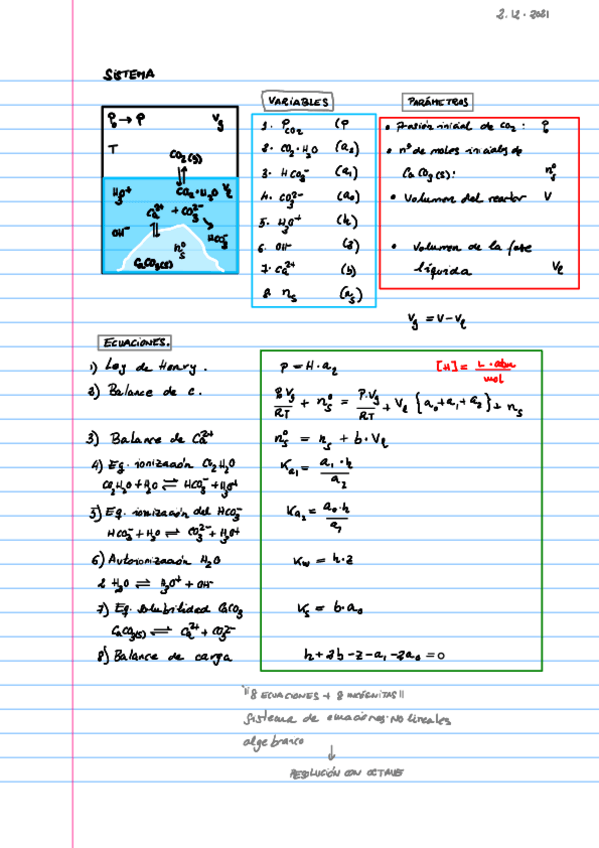 2.12.2021
SISTEMA
VARIABLES
PARÁMETROS
P₀ → P Vg
T
CO₂(g)
H₃O⁺ CO₂·H₂O Vl
Ca²⁺ + CO₃²⁻
OH⁻ HCO₃⁻
n⁰s
CaCO₃(s)
1. P CO₂ (P
2. CO₂·H₂O (a₂)
3. HCO₃⁻ (a₁)
4. CO₃²⁻ (a₀)
5. H₃O⁺ (h)
6. OH⁻ (z)
7. Ca²⁺ (b)
8 ns (as)
• Presión inicial de CO₂: P₀
• nº de moles iniciales de
CaCO₃(s): n⁰s
• Volumen del reactor V
• Volumen de la fase
líquida Vl
Vg = V - Vl
ECUACIONES.
1) Ley de Henry. P = H·a₂ [H] = L·atm/mol
2) Balance de C. P₀Vg/RT + n⁰s = P·Vg/RT + Vl {a₀+a₁+a₂} + ns
3) Balance de Ca²⁺ n⁰s = ns + b·Vl
4) Eq. ionización CO₂H₂O Ka₁ = a₁·h/a₂
CO₂H₂O + H₂O ⇌ HCO₃⁻ + H₃O⁺
5) Eq. ionización del HCO₃⁻ Ka₂ = a₀·h/a₁
HCO₃⁻ + H₂O ⇌ CO₃²⁻ + H₃O⁺
6) Autoionización H₂O Kw = h·z
2 H₂O ⇌ H₃O⁺ + OH⁻
7) Eq. solubilidad CaCO₃ Ks = b·a₀
CaCO₃(s) ⇌ Ca²⁺ + CO₃²⁻
8) Balance de carga h + 2b - z - a₁ - 2a₀ = 0
"8 ECUACIONES + 8 INCÓGNITAS"
Sistema de ecuaciones NO lineales
algebraico
↓
RESOLUCIÓN CON OCTAVE